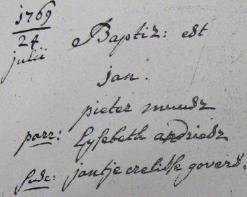 1769
24 Baptiz: est
julii
jan.
pieter muusz
parr: Lysebeth andriesz
susc: jantje crelisse goverd.